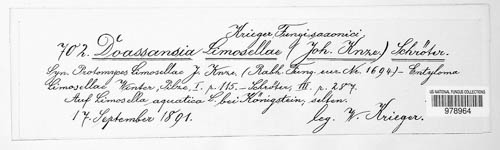 Krieger Fungi saxonici.
702. Doassansia Limosellae (Joh. Knze.) Schröter.
Syn. Protomyces Limosellae J. Knze. (Rabh. Fung. eur. Nr. 1694) – Entyloma
Limosellae Winter, Pilze, I. p. 115. – Schröter, III. p. 287.
Auf Limosella aquatica L. bei Königstein, selten.
17. September 1891. leg. W. Krieger.
US NATIONAL FUNGUS COLLECTIONS
978964